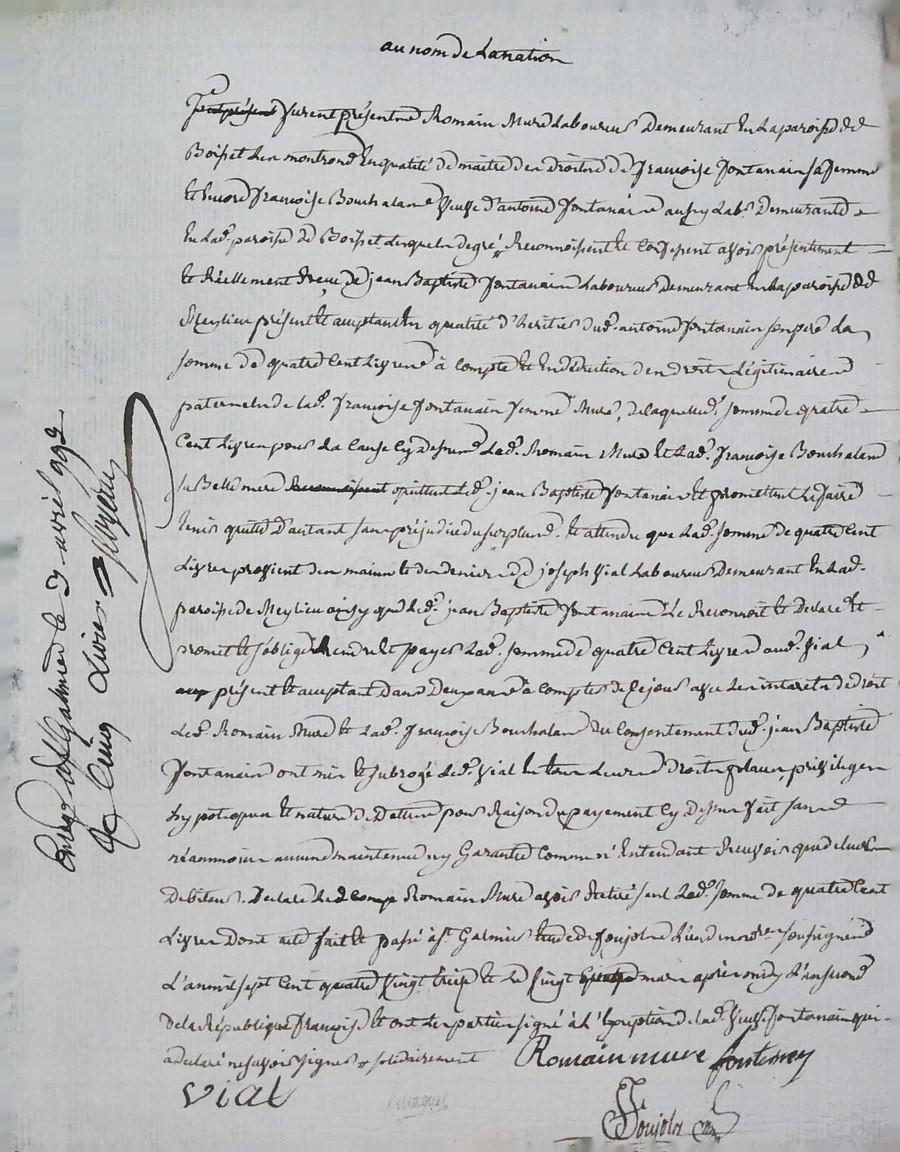 au nom de la nation
furent présents Romain Mure Laboureur Demeurant En La paroisse de
Boisset Les montrond En qualité de maitre des droits de françoise fontanain sa femme
Et Encore françoise Bouchaland Veuve d'antoine fontanain aussy Labr. Demeurante
En Lad. paroisse de Boisset Lesquels de gré, Reconnoissent Et Confessent avoir présentement
Et Réellement Reçu de jean Baptiste fontanain Laboureur Demeurant En La paroisse de
Meylieu présent Et acceptant En qualité d'héritier dud. antoine fontanain son père La
somme de quatre Cent Livres à compte Et En déduction des droits Légitimaires
paternels de Lad. françoise fontanain femme Mure, de laquelle somme de quatre
Cent Livres pour La Cause Cy Dessus Led. Romain Mure Et Lad. françoise Bouchaland
sa Belle mere quittent Led. jean Baptiste fontanain Et promettent Le faire
tenir quitte D'autant sans préjudice du surplus. Et attendu que Lad. somme de quatre Cent
Livres provient des mains Et des deniers de joseph Vial Laboureur Demeurant En Lad.
paroisse de Meylieu ainsy que Led. jean Baptiste fontanain Le Reconnoit Et Declare Et
promet Et s'oblige Rendre Et payer Lad. somme de quatre Cent Livres aud. Vial
présent Et acceptant Dans Deux années à compter de Ce jour avec Les interets de droit
Led. Romain Mure Et Lad. françoise Bouchaland du Consentement dud. jean Baptiste
fontanain ont mis Et subrogé Led. Vial En tous Leurs droits place, privilèges
hypotèques Et nature de Dette pour Raison du payement Cy Dessus fait sans
néanmoins aucune maintenue ny Garantie Comme n'Entendant Recevoir que de Leur
Debiteur. Declare Led Romain Mure avoir Retiré seul Lad. somme de quatre Cent
Livres Dont acte fait Et passé à St. Galmier Etude de Soujolon L'un des notres. soussignés
L'an mil sept Cent quatre Vingt treize Et Le Vingt mars après midy L'an second
de la République françoise Et ont Les parties signé à L'Exception de Lad. Veuve fontanain qui
a declaré ne savoir signer solidairement Romain mure fontenay
Vial